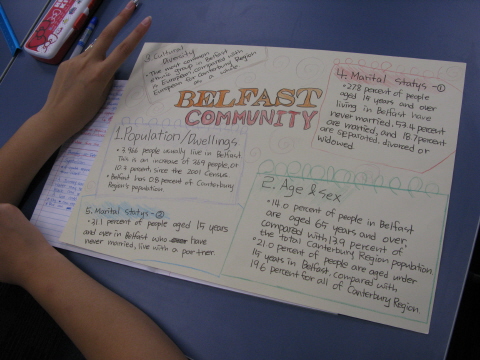 3. Cultural
Diversity
• The most common
ethnic group in Belfast
is European, compared with
European for Canterbury Region
as a whole
BELFAST
COMMUNITY
1. Population/Dwellings
people usually live in Belfast.
This is an increase of 369 people, or
10.4 percent, since the 2001 Census.
• Belfast has 0.8 percent of Canterbury
Region's population.
5. Marital statys-②
• 31.1 percent of people aged 15 years
and over in Belfast who have
never married, live with a partner.
4. Marital statys-①
• 27.8 percent of people
aged 15 years and over
living in Belfast have
never married, 53.4 percent
are married, and 18.7 percent
are separated, divorced or
widowed.
2. Age & sex
• 14.0 percent of people in Belfast
are aged 65 years and over,
compared with 13.9 percent of
the total Canterbury Region population.
• 21.0 percent of people are aged under
15 years in Belfast, compared with
19.6 percent for all of Canterbury Region